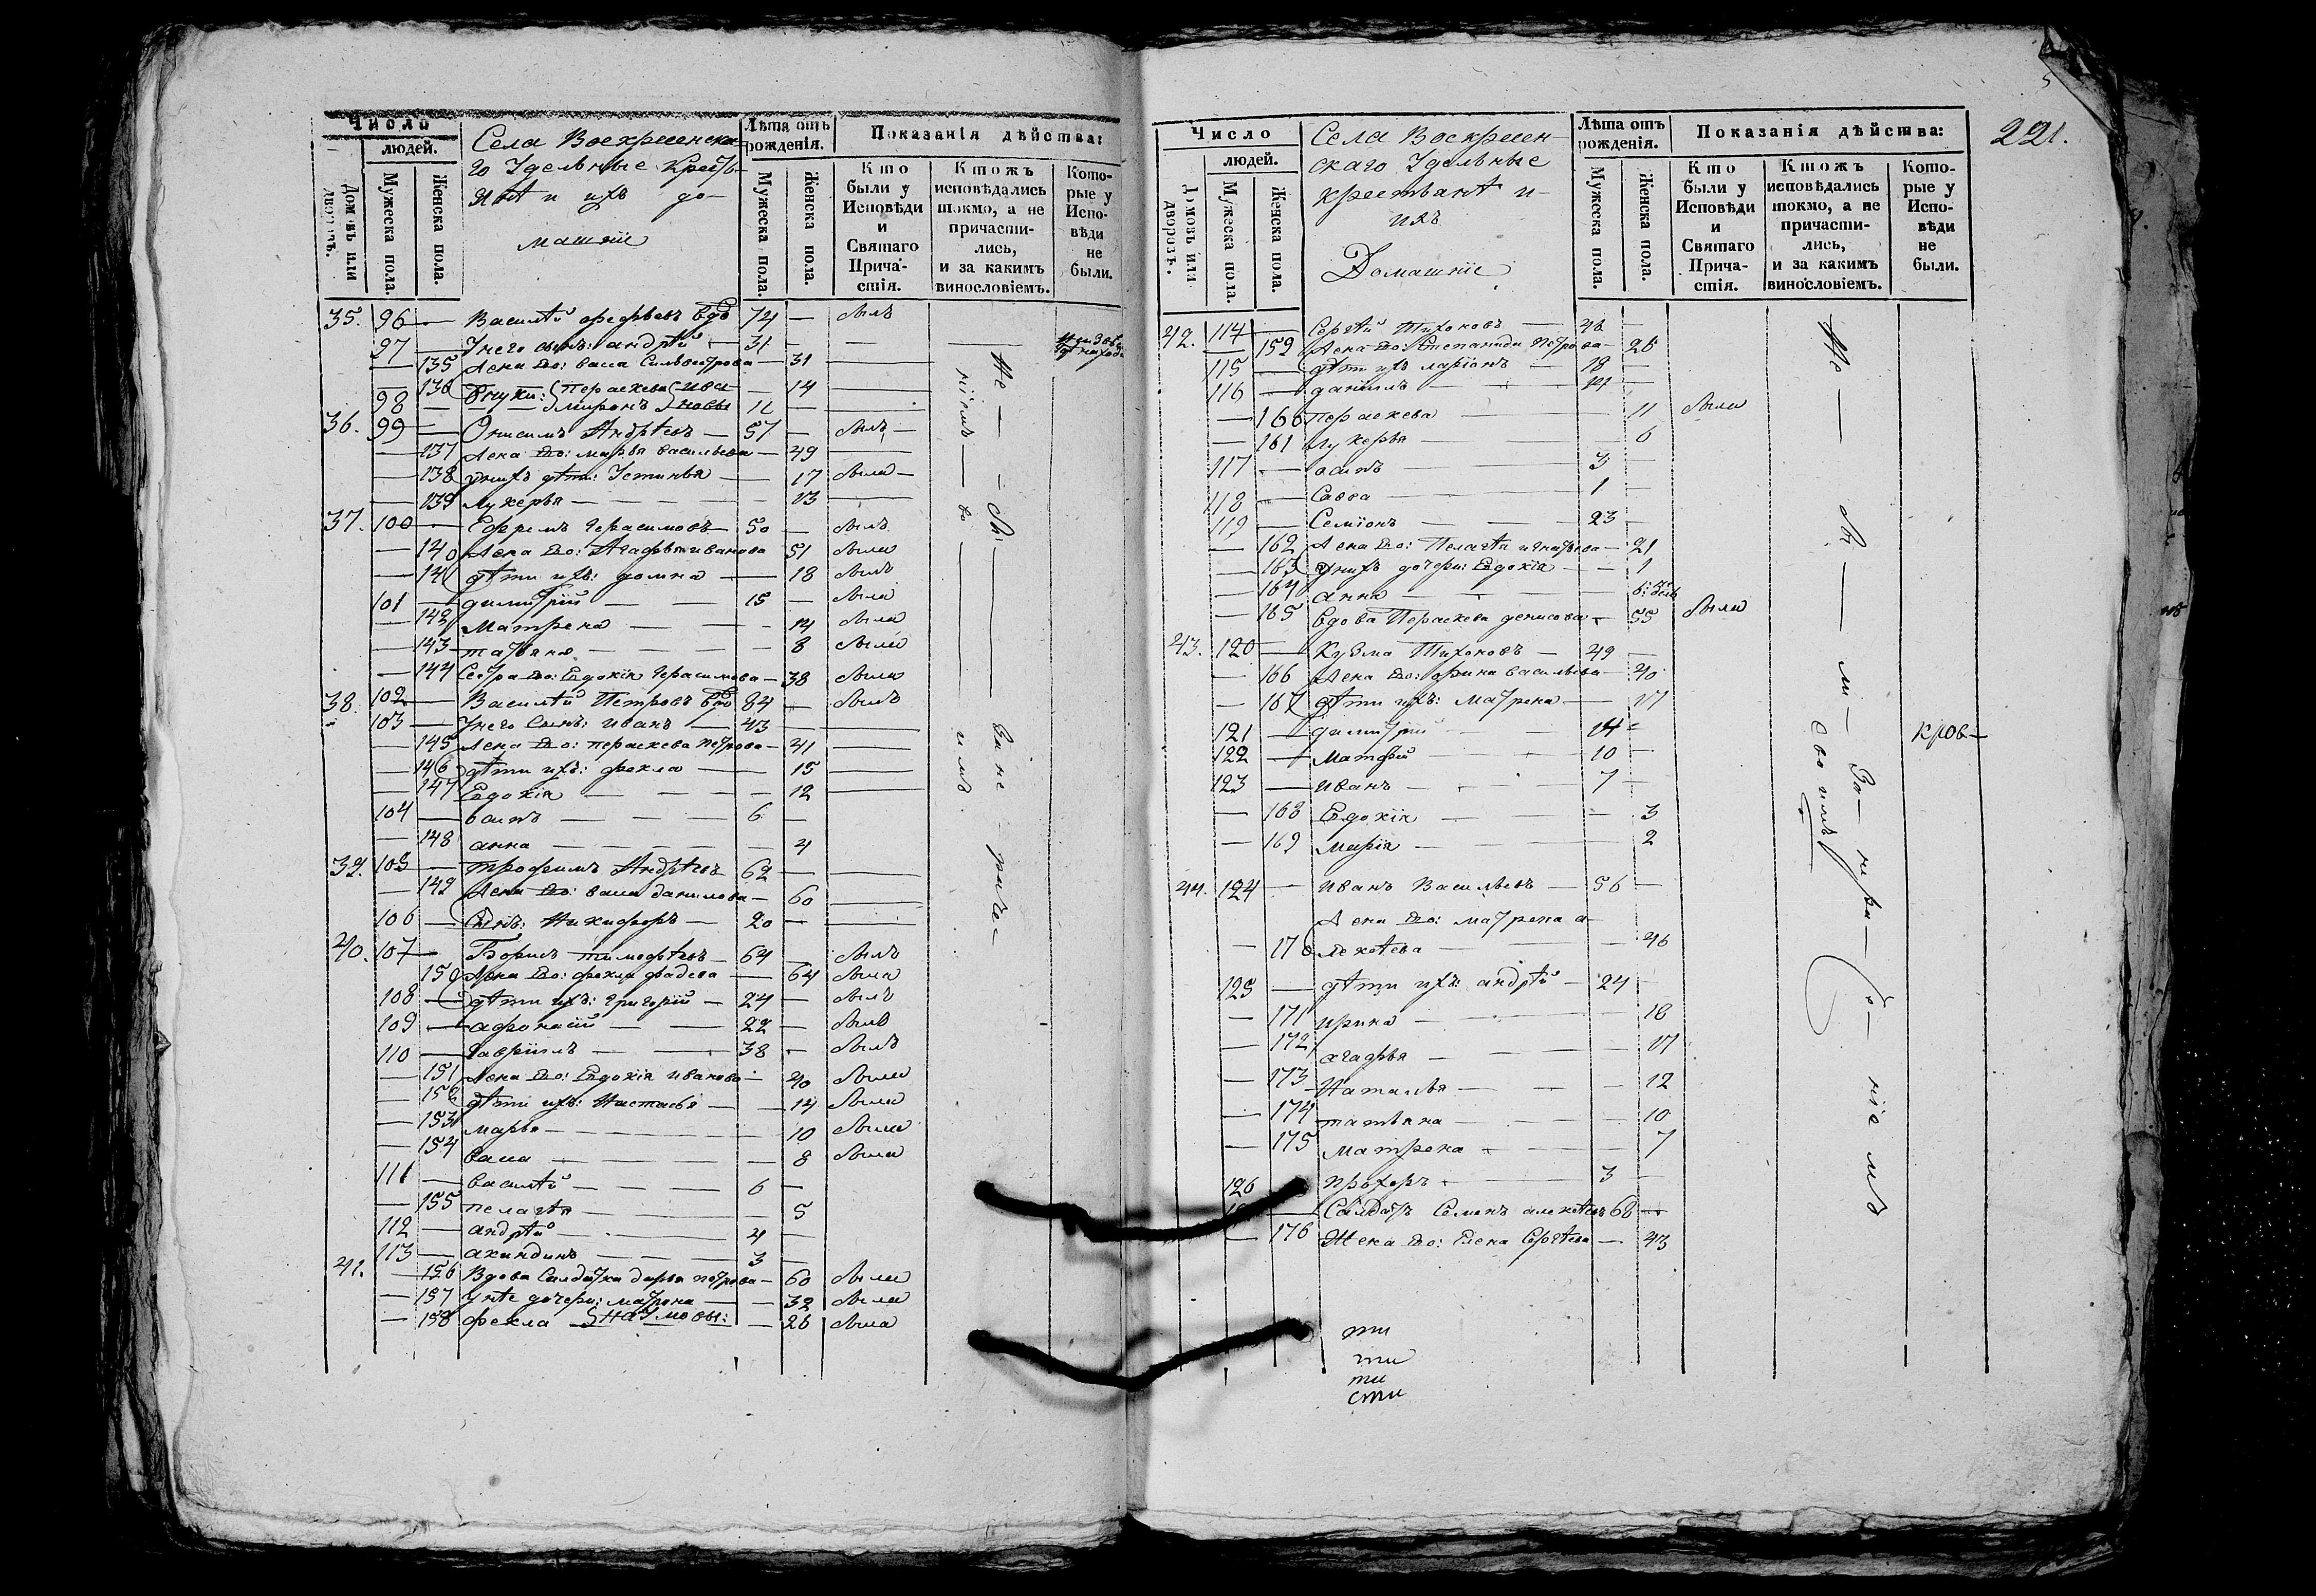 Число
людей.
Домовъ или дворовъ.
Мужеска пола.
Женска пола.
Села Воскресенска-
го Удельные Крестья-
яне и ихъ до-
машніи
Лѣта отъ рожденія.
Мужеска пола.
Женска пола.
Показанія дѣйства:
Кто были у Исповѣди и Святаго Прича-стія.
Ктожъ исповѣдались токмо, а не причасти-лись, и за какимъ винословіемъ.
Кото-рые у Испо-вѣди не были.
35. 96 — Василѣй Вдо 74 — былъ
97 — Унего сынъ: андрѣй — 31 —
— 135 Жена Его: васа Сильвестрова — 31
— 136 Внуки: Параскева — 14
98 — миронъ 11 —
36. 99 — Онисимъ Андрѣевъ — 57 — былъ —
— 137 Жена Его: марья васильева — 49
— 138 унихъ дѣти: Устинья — 17 была —
— 139 лукерья — 13
37. 100 — Ефремъ Герасимовъ — 50 — былъ
— 140 Жена Его: Агафья иванова 51 была
— 141 дѣти ихъ: домна — 18 былъ
101 — димитрій — 15 — были
— 142 Матрена — 14 была
— 143 татьяна — 8 была
— 144 Сестра Его: Евдокія Герасимова — 38 была
38. 102 — Василѣй Петровъ вдо 84 — былъ
103 — Унего Сынъ: иванъ — 43
— 145 Жена Его: параскева петрова — 41
— 146 дѣти ихъ: фекла — 15
— 147 Евдокія — 12
104 — 6 —
— 148 анна — 4
39. 105 — трофимъ Андрѣевъ 62 —
— 149 Жена Его: васса данилова — 60
106 — Сынъ: Никифоръ — 20 —
40. 107 — Борисъ тимофѣевъ — 64 — былъ
150 Жена Его: фекла фадеева — 64 была
108 — дѣти ихъ: григорій — 24 — былъ
109 — афонасій — 22 — былъ
110 — Гавріилъ — 38 — былъ
— 151 Жена Его: Евдокія иванова — 40 была
— 152 дѣти ихъ: Настасья — 14 была
— 153 марья — 10 была
— 154 васса — 8 была
111 — василѣй — 6 —
— 155 пелагѣя — 5
112 — андрѣй — 4 —
113 — акиндинъ — 3 —
41. — 156 Вдова Салдатка дарья петрова — 60 была
— 157 унѣе дочери: матрона — 32 была
— 158 фекла наумовы: — 26 была
Не — бы — за не — раче —
ніемъ — во — имъ.
221.
Число
людей.
Домовъ или дворовъ.
Мужеска пола.
Женска пола.
Села Воскресен-
скаго Удельные
крестьянѣ и
ихъ
Домашніе
Лѣта отъ рожденія.
Мужеска пола.
Женска пола.
Показанія дѣйства:
Кто были у Исповѣди и Святаго Прича-стія.
Ктожъ исповѣдались токмо, а не причасти-лись, и за какимъ винословіемъ.
Кото-рые у Испо-вѣди не были.
42. 114 — Сергѣй Тихоновъ —
— 159 Жена Его: Степанида Петрова —
115 — дѣти ихъ ларіонъ — 18 —
116 — даніилъ —
— 160 Параскева — 11 были
— 161 Лукерья — 6
117 — осипъ — 3 —
118 — Савва — 1 —
119 — Семіонъ — 23 —
— 162 Жена Его: Пелагѣя игнатьева — 21
— 163 унихъ дочери: Евдокія — 1
— 164 анна —
— 165 вдова Параскева денисова — 55 была
43. 120 — Кузма Тихоновъ — 49 —
— 166 Жена Его: фрина васильева — 40
— 167 дѣти ихъ: Матрена — 17
121 — димитрій — 14
122 — Матфѣй — 10 —
123 — Иванъ — 7 —
— 168 Евдокія — 3
— 169 Марія — 2
44. 124 — Иванъ Васильевъ — 56 —
Жена Его: матрена а-
— 170 лексѣева — 46
125 — дѣти ихъ: андрѣй — 24 —
— 171 ирина — 18
— 172 агафья — 17
— 173 Наталья — 12
— 174 татьяна — 10
— 175 Матрена — 7
126 прохоръ — 3 —
— Салдатъ Семенъ алексѣевъ 68 —
— 176 Жена Его: Елена Сергѣева — 43
Не — бы — ли — За — нера — — ніе мъ
своимъ
кров —
ти
ти
ти
сти